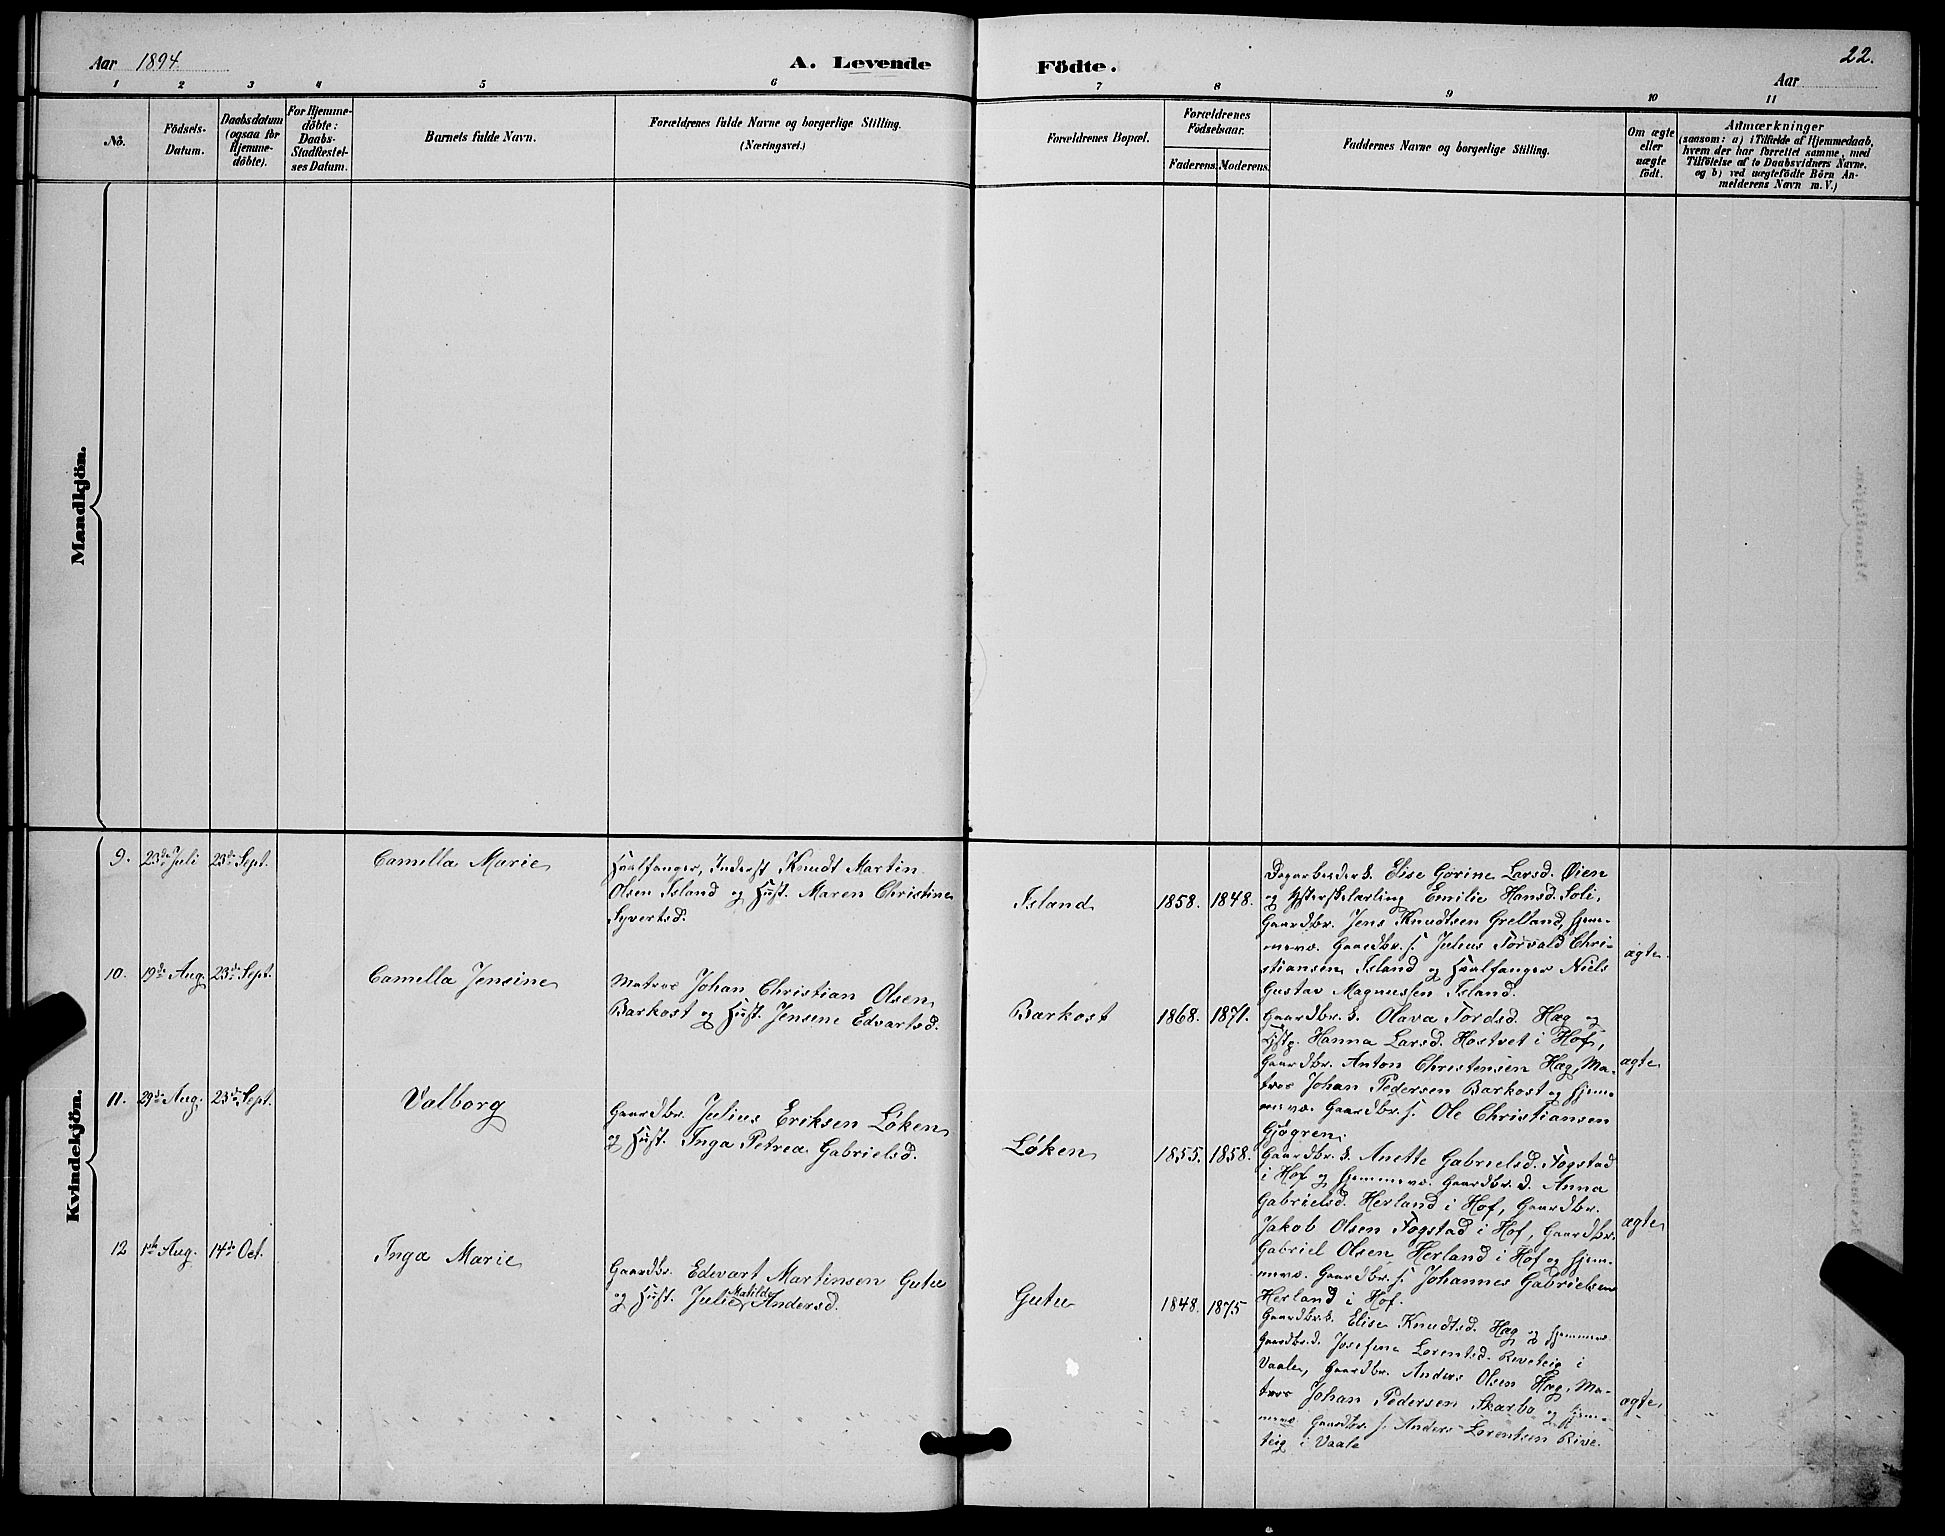 Aar 1894.
A. Levende
Födte.
22.
Aar
1 2 3 4 5 6 7 8 9 10 11
No.
Födsels-
Datum.
Daabsdatum
(ogsaa för
Hjemme-
döbte).
For Hjemme-
döbte:
Daabs-
Stadfæstel-
ses Datum.
Barnets fulde Navn.
Forældrenes fulde Navne og borgerlige Stilling.
(Næringsvei.)
Forældrenes Bopæl.
Forældrenes
Födselsaar.
Faderens. Moderens.
Faddernes Navne og borgerlige Stilling.
Om ægte
eller
uægte
født.
Anmærkninger
(saasom: a) i Tilfælde af Hjemmedaab,
hvem der har forrettet samme, med
Tilföielse af to Daabsvidners Navne.
og b) ved uægtefödte Börn An-
melderens Navn m.V.)
Mandkjön.
Kvindekjön.
9. 23de Juli 23de Sept.
Camella Marie
Hvalfanger, Inderst Knudt Martin
Olsen Island og Hust. Maren Christine
Syvertsd.
Island
1858. 1848.
Elise Gorine Larsd. Øien
og Emilie Hansd. Soli,
Gaardbr. Jens Knudtsen Grelland, hjem-
mevæ. Gaardbr. s. Julius Torvald Chri-
stiansen Island og Hvalfanger Niels
Gustav Magnussen Island.
ægte
10. 19de Aug. 23de Sept.
Camella Jensine
Matros Johan Christian Olsen
Barkost og Hust. Jensine Edvartsd.
Barkost
1868. 1871.
Gaardbr. k. Olava Tordsd. Hæg og
Hanna Larsd. Hostvet i Hof,
Gaardbr. Anton Christensen Hæg, Ma-
tros Johan Pedersen Barkost og hjem-
mevæ. Gaardbr. s. Ole Christiansen
Gjøgren.
ægte
11. 29de Aug. 23de Sept.
Valborg
Gaardbr. Julius Eriksen Løken
og Hust. Inga Petrea Gabrielsd.
Løken
1855. 1858.
Gaardbr. k. Anette Gabrielsd. Fogstad
i Hof og hjemmevæ. Gaardbr. d. Anna
Gabrielsd. Herland i Hof, Gaardbr.
Jakob Olsen Fogstad i Hof, Gaardbr.
Gabriel Olsen Herland i Hof og hjem-
mevæ. Gaardbr. s. Johannes Gabrielsen
Herland i Hof.
ægte
12 1ste Aug. 14de Oct.
Inga Marie
Gaardbr. Edevart Martinsen Gutu
og Hust. Julie Matilde Andersd.
Gutu
1848. 1875
Gaardbr. k. Elise Knudtsd. Hæg og hjemmevæ.
Gaardbr. d. Josefine Lorentsd. Riveteig i
Vaale, Gaardbr. Anders Olsen Hæg, Ma-
tros Johan Pedersen Skarbo og hjem-
mevæ. Gaardbr. s. Anders Lorentsen Rive-
teig i Vaale
ægte